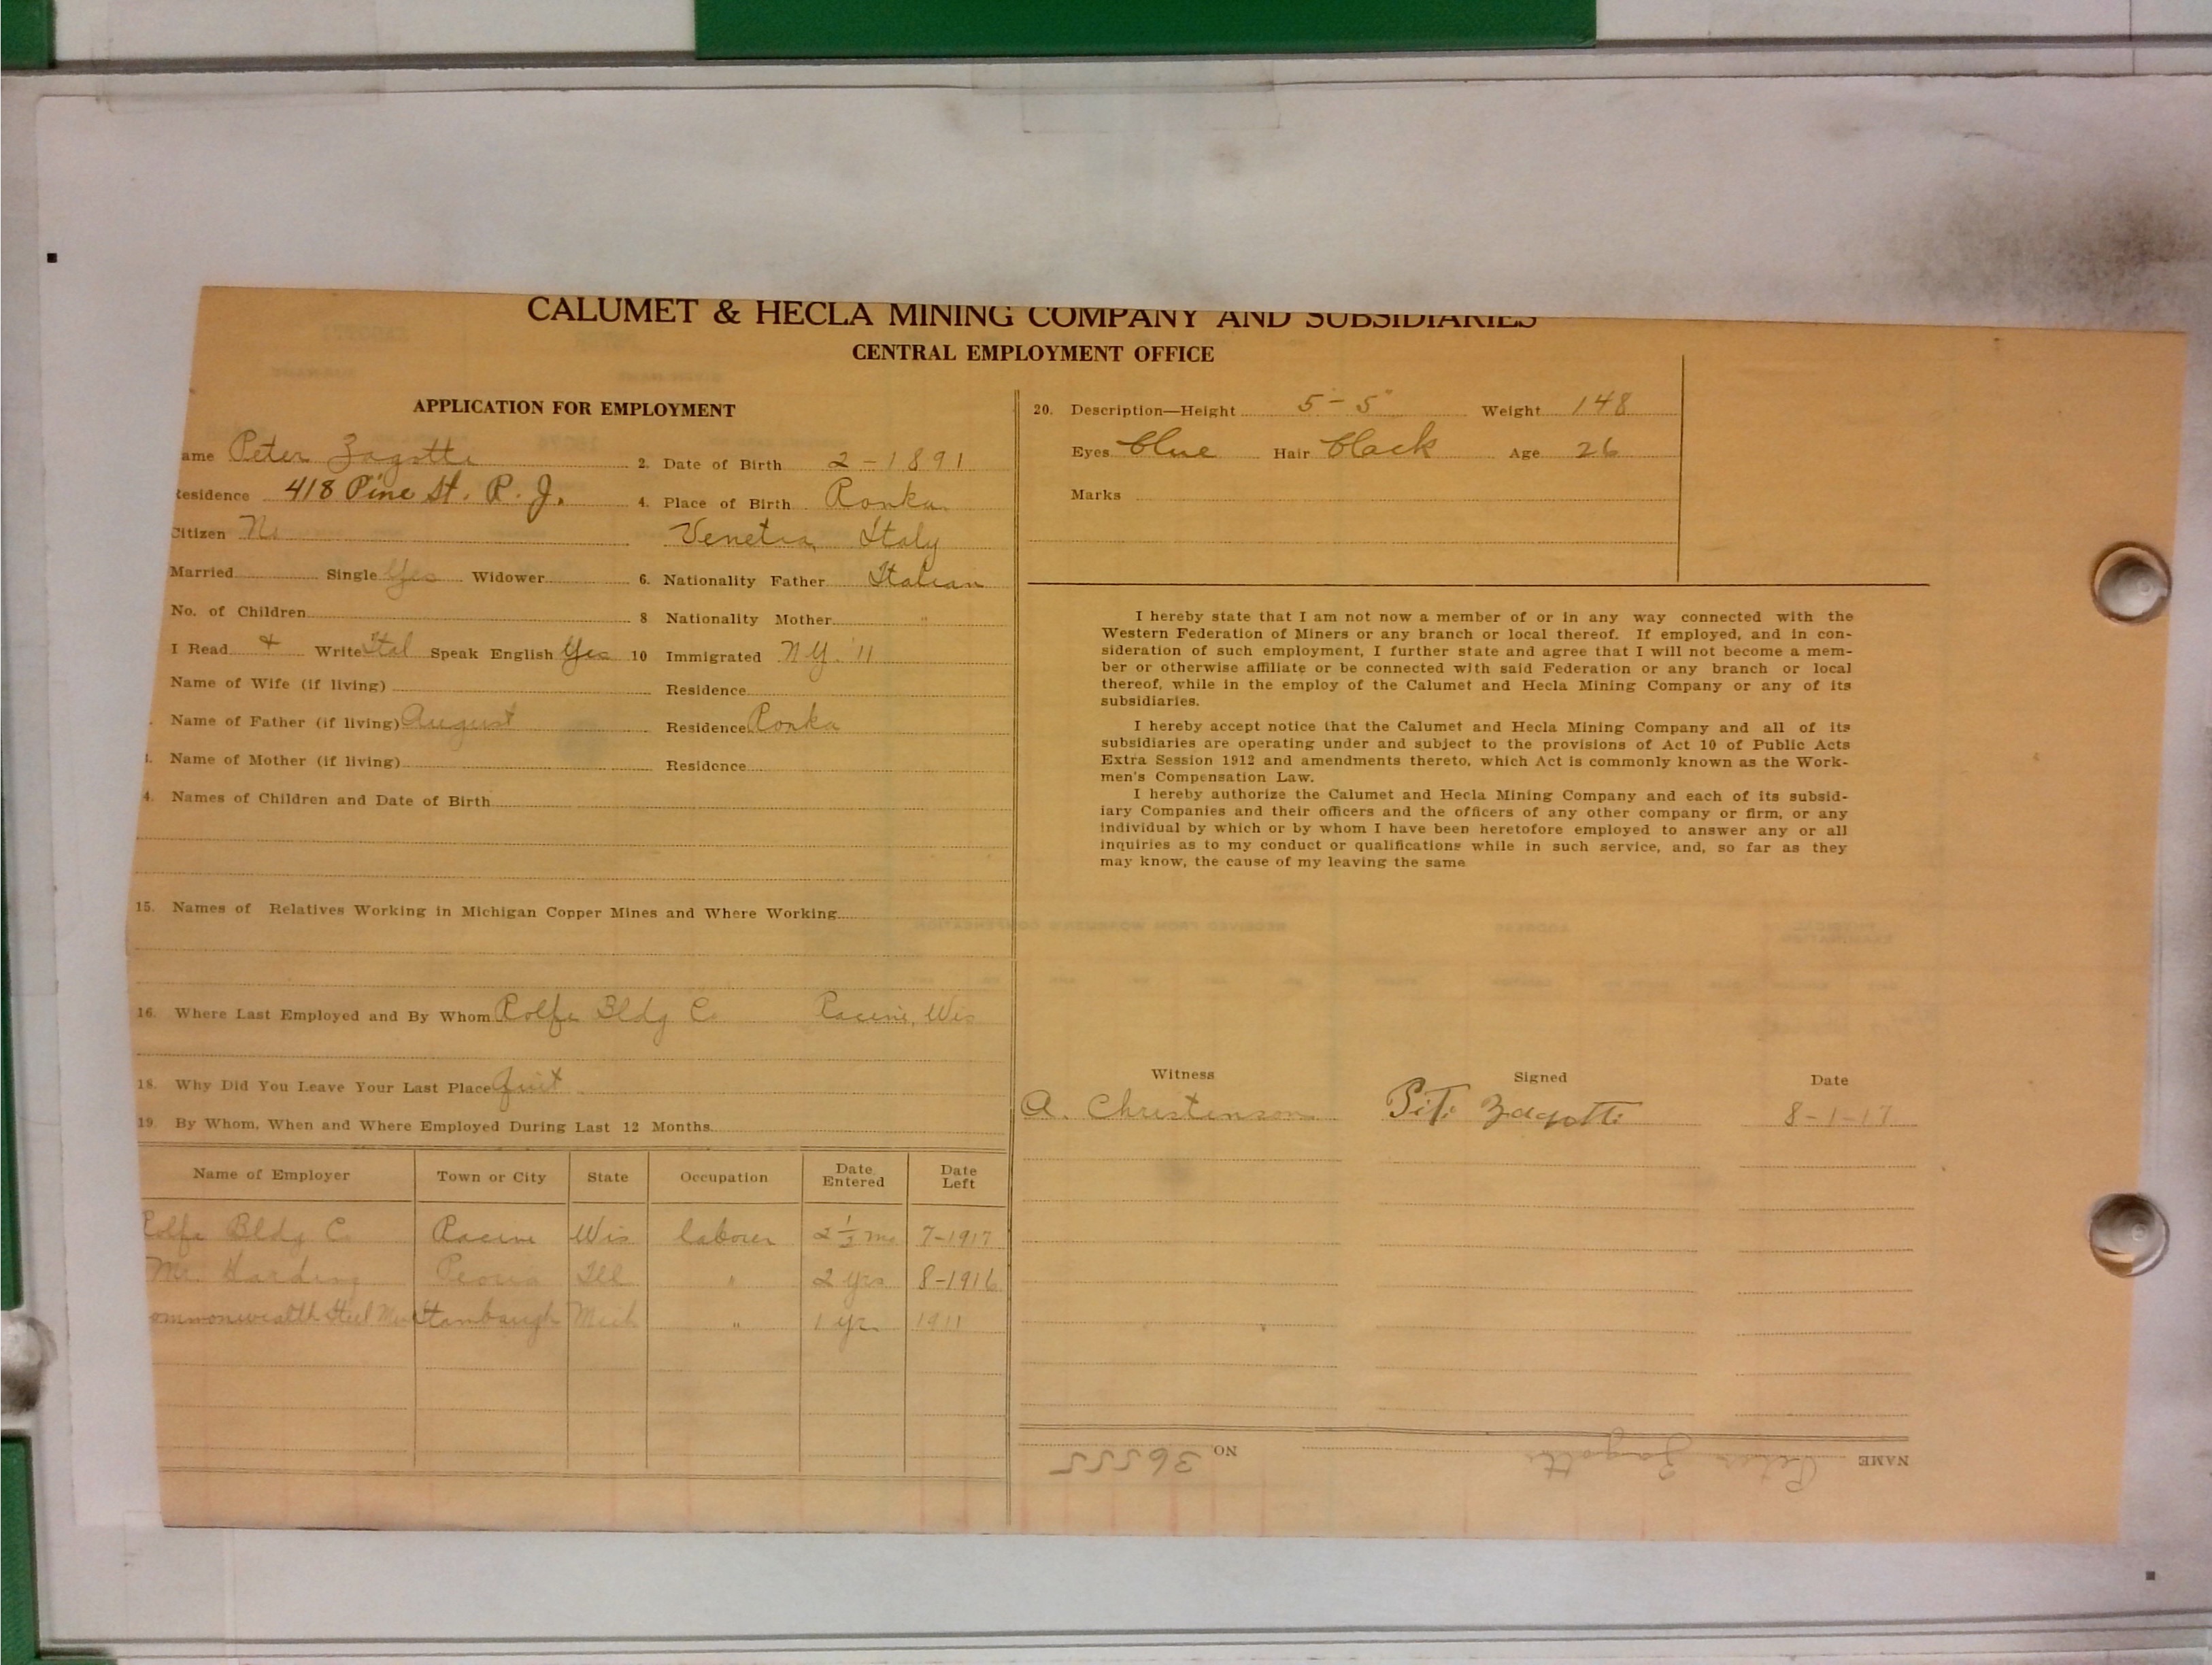 CALUMET & HECLA MINING COMPANY AND SUBSIDIARIES
CENTRAL EMPLOYMENT OFFICE
APPLICATION FOR EMPLOYMENT
ame Peter Zagotti 2. Date of Birth 2-1891
Residence 418 Pine St. R. J. 4. Place of Birth Ronka
Citizen No Venetia Italy
Married Single Yes Widower 6. Nationality Father Italian
No. of Children 8 Nationality Mother "
I Read + Write Ital Speak English Yes 10 Immigrated N.Y. '11
Name of Wife (if living) Residence
Name of Father (if living) August Residence Ronka
Name of Mother (if living) Residence
4. Names of Children and Date of Birth
15. Names of Relatives Working in Michigan Copper Mines and Where Working
16. Where Last Employed and By Whom Rolfe Bldg Co Racine, Wis
18. Why Did You Leave Your Last Place Quit
19. By Whom, When and Where Employed During Last 12 Months
Name of Employer Town or City State Occupation Date Entered Date Left
Rolfe Bldg Co Racine Wis laborer 2 1/2 mo 7-1917
Mr. Harding Peoria Ill " 2 yrs 8-1916
ommonwealth Steel Stambaugh Mich " 1 yr 1911
20. Description—Height 5-5" Weight 148
Eyes blue Hair black Age 26
Marks
I hereby state that I am not now a member of or in any way connected with the
Western Federation of Miners or any branch or local thereof. If employed, and in con-
sideration of such employment, I further state and agree that I will not become a mem-
ber or otherwise affiliate or be connected with said Federation or any branch or local
thereof, while in the employ of the Calumet and Hecla Mining Company or any of its
subsidiaries.
I hereby accept notice that the Calumet and Hecla Mining Company and all of its
subsidiaries are operating under and subject to the provisions of Act 10 of Public Acts
Extra Session 1912 and amendments thereto, which Act is commonly known as the Work-
men's Compensation Law.
I hereby authorize the Calumet and Hecla Mining Company and each of its subsid-
iary Companies and their officers and the officers of any other company or firm, or any
individual by which or by whom I have been heretofore employed to answer any or all
inquiries as to my conduct or qualifications while in such service, and, so far as they
may know, the cause of my leaving the same
Witness Signed Date
A. Christenson Piti Zagotti 8-1-17
NAME Peter Zagotti NO 36555